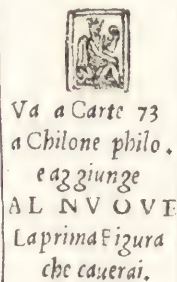 Va a Carte 73
a Chilone philo.
e aggiunge
AL NVOVE
La prima Figura
che cauerai.